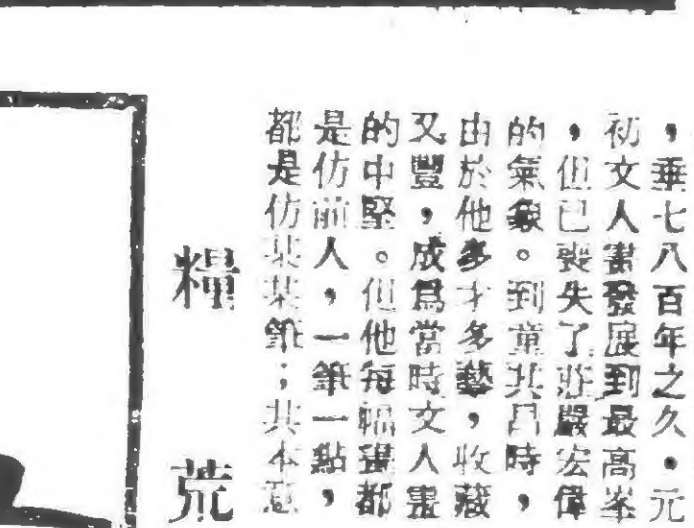 ，垂七八百年之久。元
初文人畫發展到最高峯
，但已喪失了莊嚴宏偉
的氣象。到董其昌時，
由於他多才多藝，收藏
又豐，成爲當時文人畫
的中堅。但他每幅畫都
是仿前人，一筆一點，
都是仿某某筆；其本意
糧荒